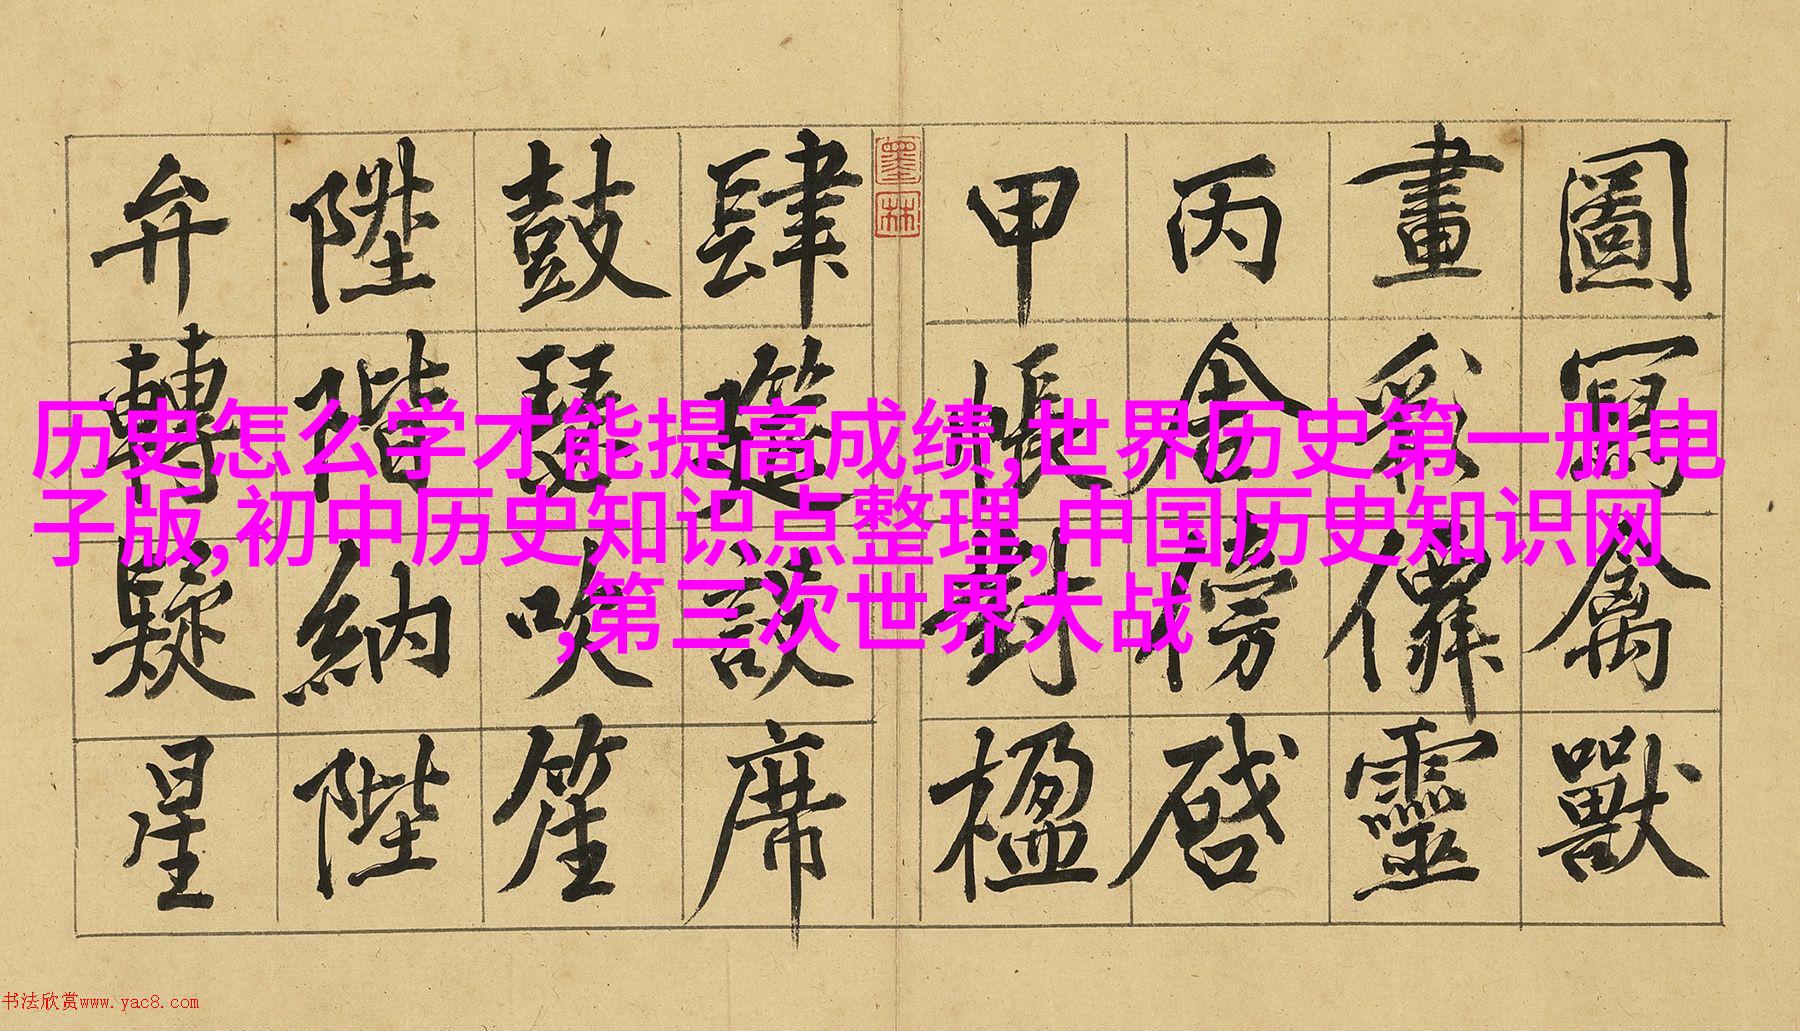 圖寫禽獸
畫彩僊靈
丙舍傍啓
甲帳對楹
墨林
肆筵設席
鼓瑟吹笙
陞階納陛
弁轉疑星
历史怎么学才能提高成绩,世界历史第一册电
子版,初中历史知识点整理,中国历史知识网
,第三次世界大战
书法欣赏www.yac8.com